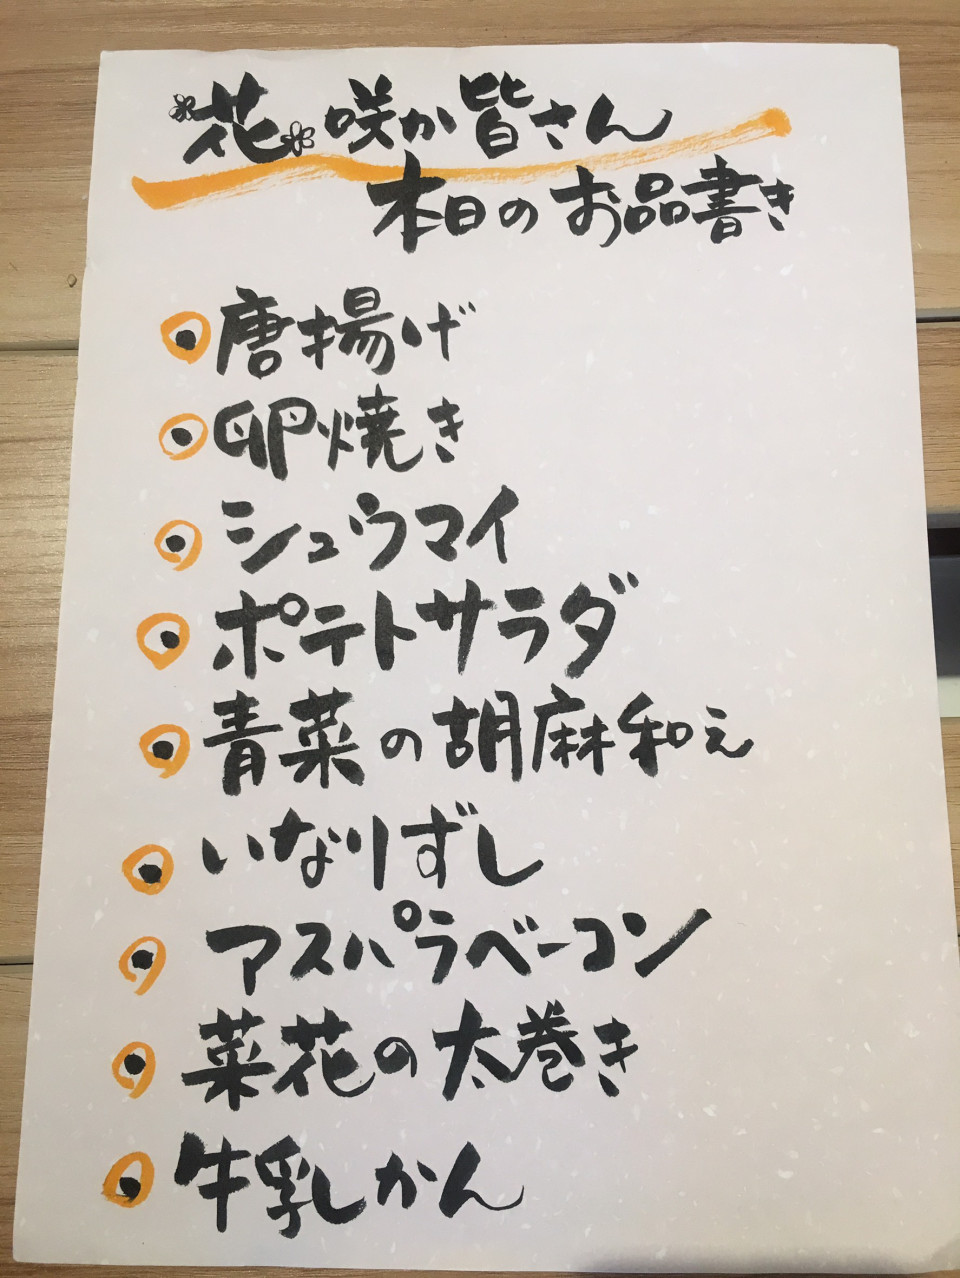 花咲か皆さん
本日のお品書き
唐揚げ
卵焼き
シュウマイ
ポテトサラダ
青菜の胡麻和え
いなりずし
アスパラベーコン
菜花の太巻き
牛乳かん